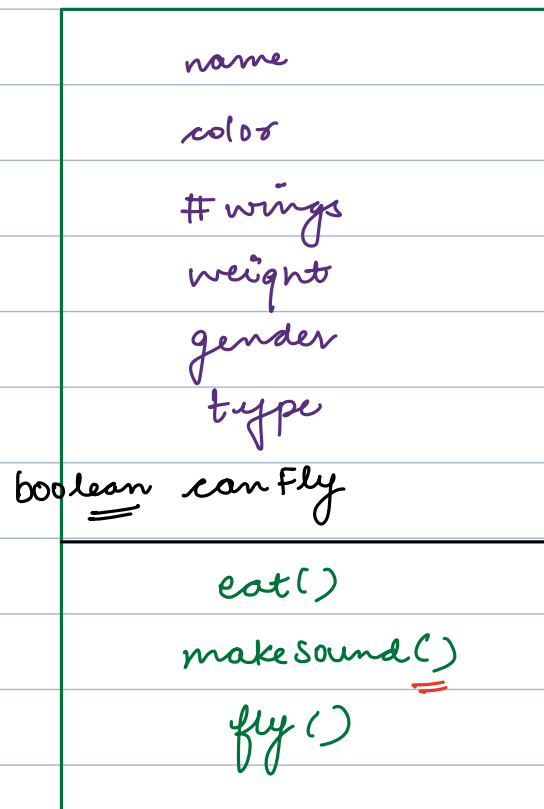 name
color
# wings
weight
gender
type
boolean canFly
eat()
makesound()
fly()